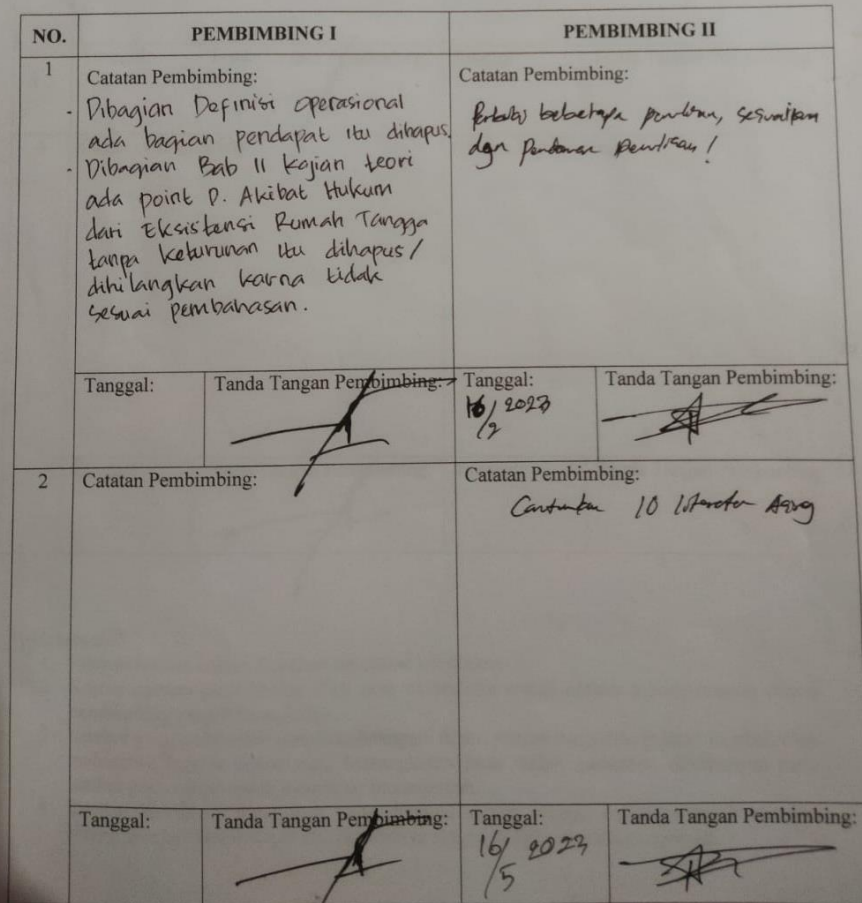 NO.
PEMBIMBING I
PEMBIMBING II
1
Catatan Pembimbing:
- Dibagian Definisi operasional
ada bagian pendapat itu dihapus.
- Dibagian Bab II Kajian teori
ada point D. Akibat Hukum
dari Eksistensi Rumah Tangga
tanpa keturunan itu dihapus/
dihilangkan karna tidak
sesuai pembahasan.
Catatan Pembimbing:
beberapa penulisan, sesuaikan
dgn Pedoman Penulisan!
Tanggal:
Tanda Tangan Pembimbing:
Tanggal:
16/2 2023
Tanda Tangan Pembimbing:
2
Catatan Pembimbing:
Catatan Pembimbing:
Cantumkan 10 literatur Asing
Tanggal:
Tanda Tangan Pembimbing:
Tanggal:
16/5 2023
Tanda Tangan Pembimbing: